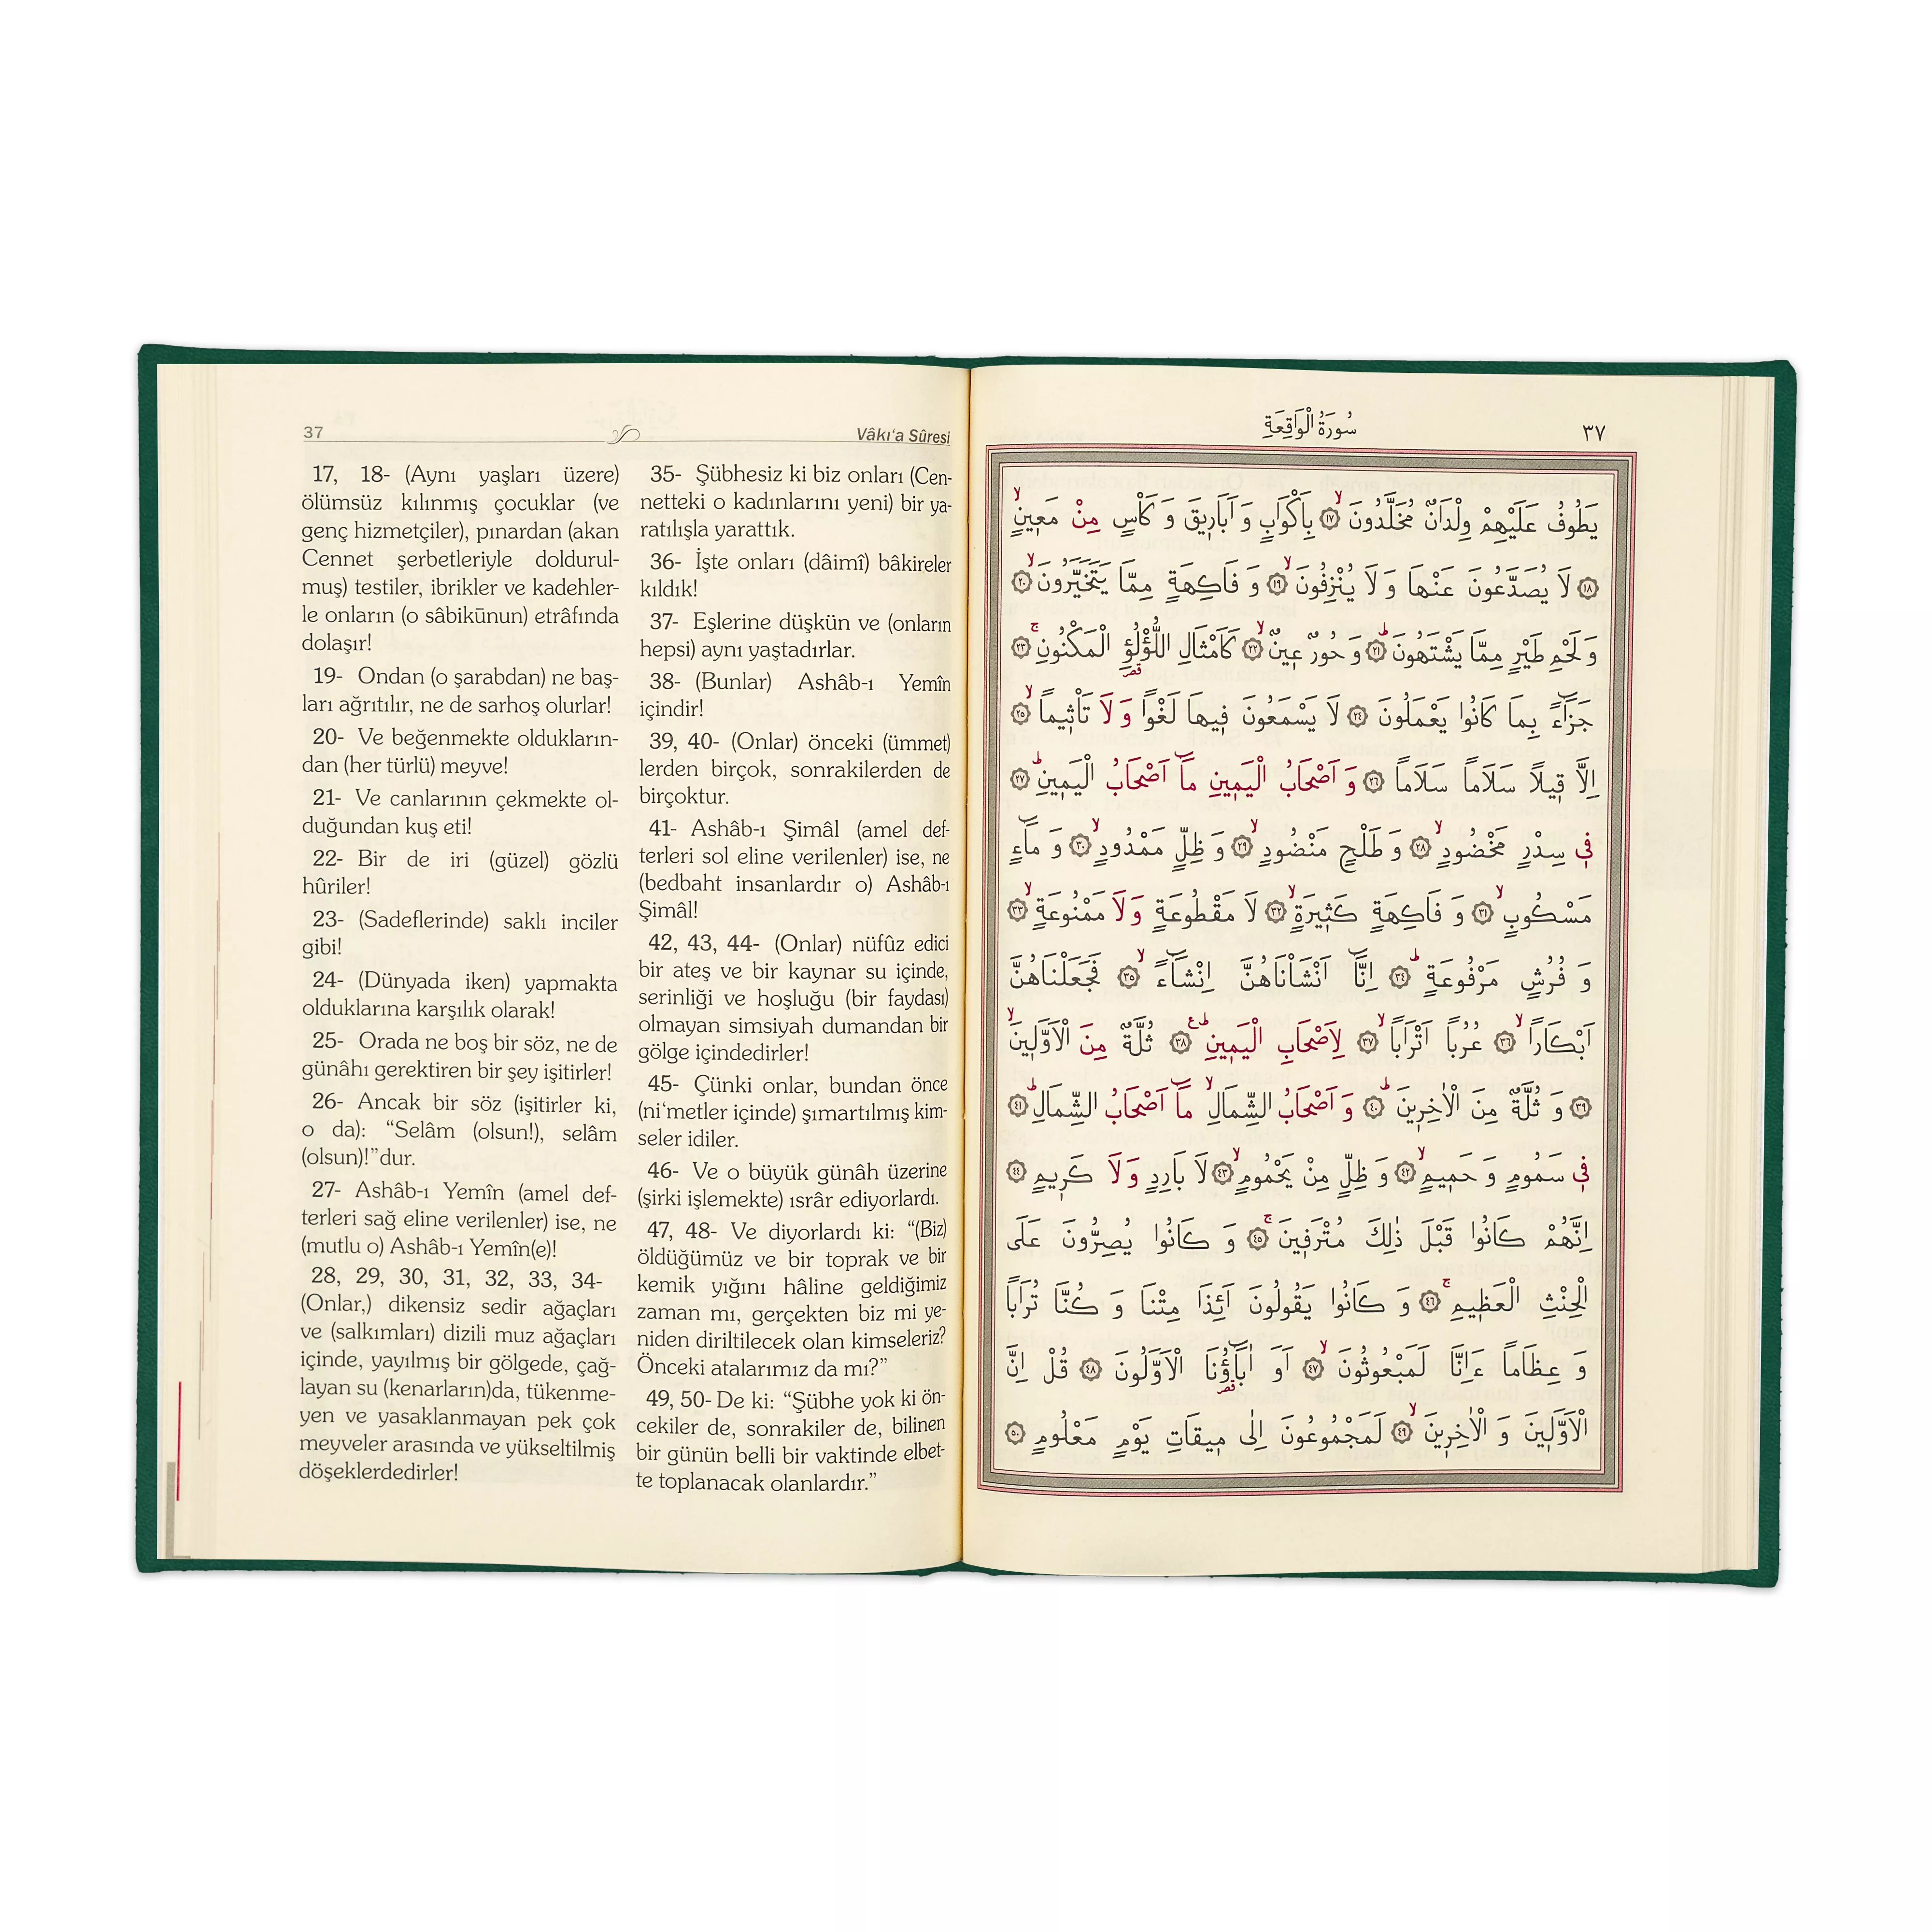 37
Vâkı‘a Sûresi
17, 18- (Aynı yaşları üzere)
ölümsüz kılınmış çocuklar (ve
genç hizmetçiler), pınardan (akan
Cennet şerbetleriyle doldurul-
muş) testiler, ibrikler ve kadehler-
le onların (o sâbikūnun) etrâfında
dolaşır!
19- Ondan (o şarabdan) ne baş-
ları ağrıtılır, ne de sarhoş olurlar!
20- Ve beğenmekte oldukların-
dan (her türlü) meyve!
21- Ve canlarının çekmekte ol-
duğundan kuş eti!
22- Bir de iri (güzel) gözlü
hûriler!
23- (Sadeflerinde) saklı inciler
gibi!
24- (Dünyada iken) yapmakta
olduklarına karşılık olarak!
25- Orada ne boş bir söz, ne de
günâhı gerektiren bir şey işitirler!
26- Ancak bir söz (işitirler ki,
o da): “Selâm (olsun!), selâm
(olsun)!”dur.
27- Ashâb-ı Yemîn (amel def-
terleri sağ eline verilenler) ise, ne
(mutlu o) Ashâb-ı Yemîn(e)!
28, 29, 30, 31, 32, 33, 34-
(Onlar,) dikensiz sedir ağaçları
ve (salkımları) dizili muz ağaçları
içinde, yayılmış bir gölgede, çağ-
layan su (kenarların)da, tükenme-
yen ve yasaklanmayan pek çok
meyveler arasında ve yükseltilmiş
döşeklerdedirler!
35- Şübhesiz ki biz onları (Cen-
netteki o kadınlarını yeni) bir ya-
ratılışla yarattık.
36- İşte onları (dâimî) bâkireler
kıldık!
37- Eşlerine düşkün ve (onların
hepsi) aynı yaştadırlar.
38- (Bunlar) Ashâb-ı Yemîn
içindir!
39, 40- (Onlar) önceki (ümmet)
lerden birçok, sonrakilerden de
birçoktur.
41- Ashâb-ı Şimâl (amel def-
terleri sol eline verilenler) ise, ne
(bedbaht insanlardır o) Ashâb-ı
Şimâl!
42, 43, 44- (Onlar) nüfûz edici
bir ateş ve bir kaynar su içinde,
serinliği ve hoşluğu (bir faydası)
olmayan simsiyah dumandan bir
gölge içindedirler!
45- Çünki onlar, bundan önce
(ni‘metler içinde) şımartılmış kim-
seler idiler.
46- Ve o büyük günâh üzerine
(şirki işlemekte) ısrâr ediyorlardı.
47, 48- Ve diyorlardı ki: “(Biz)
öldüğümüz ve bir toprak ve bir
kemik yığını hâline geldiğimiz
zaman mı, gerçekten biz mi ye-
niden diriltilecek olan kimseleriz?
Önceki atalarımız da mı?”
49, 50- De ki: “Şübhe yok ki ön-
cekiler de, sonrakiler de, bilinen
bir günün belli bir vaktinde elbet-
te toplanacak olanlardır.”
سُورَةُ الْوَاقِعَةِ
٣٧
يَطُوفُ عَلَيْهِمْ وِلْدَانٌ مُخَلَّدُونَ ۙ ١٧ بِاَكْوَابٍ وَ اَبَارِيقَ وَ كَأْسٍ مِنْ مَعِينٍ ۙ
١٨ لَا يُصَدَّعُونَ عَنْهَا وَ لَا يُنْزِفُونَ ۙ ١٩ وَ فَاكِهَةٍ مِمَّا يَتَخَيَّرُونَ ۙ ٢٠
وَ لَحْمِ طَيْرٍ مِمَّا يَشْتَهُونَ ۜ ٢١ وَ حُورٌ عِينٌ ۙ ٢٢ كَاَمْثَالِ اللُّؤْلُؤِ الْمَكْنُونِ ۚ ٢٣
جَزَٓاءً بِمَا كَانُوا يَعْمَلُونَ ٢٤ لَا يَسْمَعُونَ فِيهَا لَغْوًا وَ لَا تَأْثِيماً ۙ ٢٥
اِلَّا قِيلاً سَلَاماً سَلَاماً ٢٦ وَ اَصْحَابُ الْيَمِينِ مَٓا اَصْحَابُ الْيَمِينِ ۜ ٢٧
فِي سِدْرٍ مَخْضُودٍ ۙ ٢٨ وَ طَلْحٍ مَنْضُودٍ ۙ ٢٩ وَ ظِلٍّ مَمْدُودٍ ۙ ٣٠ وَ مَٓاءٍ
مَسْكُوبٍ ۙ ٣١ وَ فَاكِهَةٍ كَثِيرَةٍ ۙ ٣٢ لَا مَقْطُوعَةٍ وَ لَا مَمْنُوعَةٍ ۙ ٣٣
وَ فُرُشٍ مَرْفُوعَةٍ ۜ ٣٤ اِنَّٓا اَنْشَأْنَاهُنَّ اِنْشَٓاءً ۙ ٣٥ فَجَعَلْنَاهُنَّ
اَبْكَاراً ۙ ٣٦ عُرُباً اَتْرَاباً ۙ ٣٧ لِاَصْحَابِ الْيَمِينِ ۜ ع ٣٨ ثُلَّةٌ مِنَ الْاَوَّلِينَ ۙ
٣٩ وَ ثُلَّةٌ مِنَ الْاٰخِرِينَ ۜ ٤٠ وَ اَصْحَابُ الشِّمَالِ ۙ مَٓا اَصْحَابُ الشِّمَالِ ۜ ٤١
فِي سَمُومٍ وَ حَمِيمٍ ۙ ٤٢ وَ ظِلٍّ مِنْ يَحْمُومٍ ۙ ٤٣ لَا بَارِدٍ وَ لَا كَرِيمٍ ٤٤
اِنَّهُمْ كَانُوا قَبْلَ ذٰلِكَ مُتْرَفِينَ ۚ ٤٥ وَ كَانُوا يُصِرُّونَ عَلَى
الْحِنْثِ الْعَظِيمِ ۚ ٤٦ وَ كَانُوا يَقُولُونَ اَئِذَا مِتْنَا وَ كُنَّا تُرَاباً
وَ عِظَاماً ءَاِنَّا لَمَبْعُوثُونَ ۙ ٤٧ اَوَ اٰبَٓاؤُنَا الْاَوَّلُونَ ٤٨ قُلْ اِنَّ
الْاَوَّلِينَ وَ الْاٰخِرِينَ ۙ ٤٩ لَمَجْمُوعُونَ اِلٰى مِيقَاتِ يَوْمٍ مَعْلُومٍ ٥٠